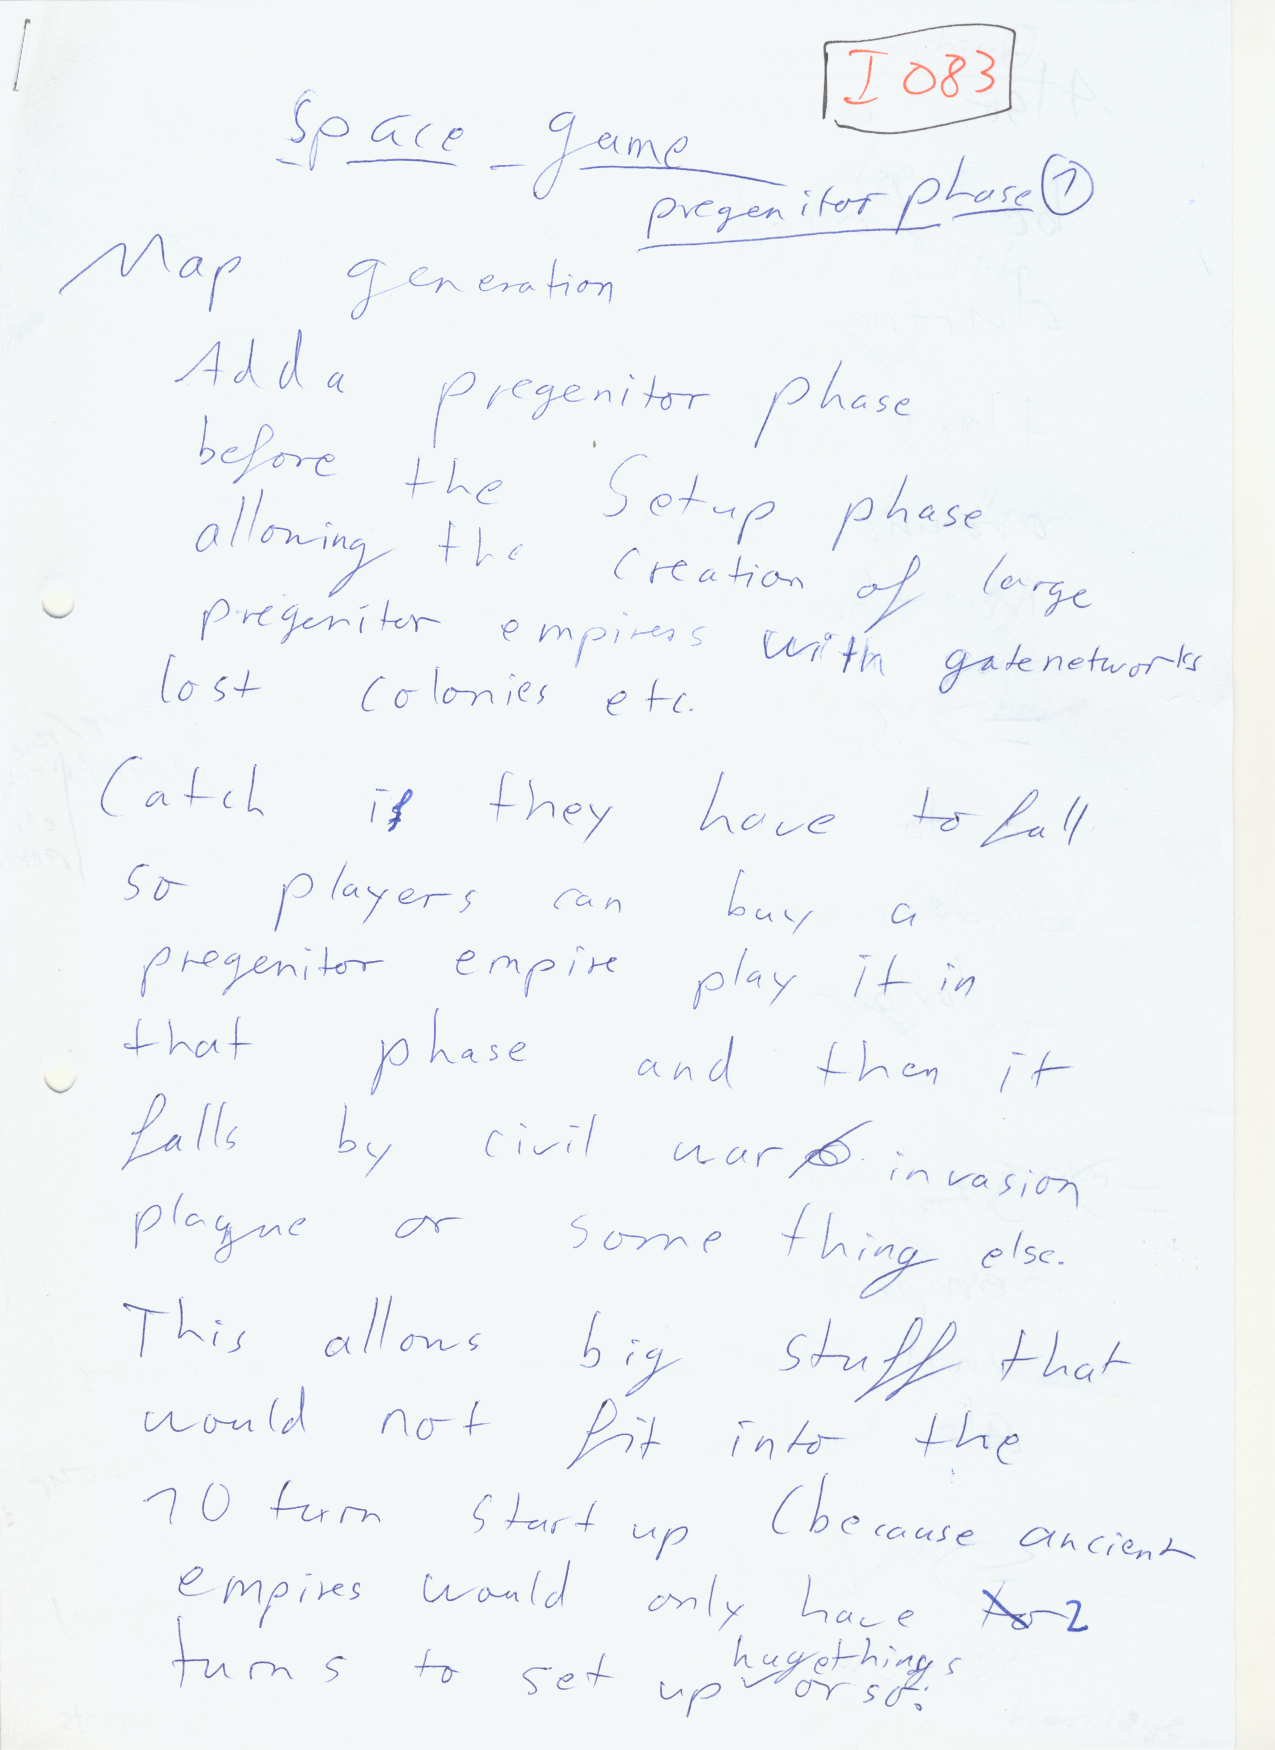 I 083
Space game
pregenitor phase 1
Map generation
Add a pregenitor phase
before the Setup phase
allowing the creation of large
pregenitor empires with gatenetworks
lost colonies etc.
Catch is they have to fall
so players can buy a
pregenitor empire play it in
that phase and then it
falls by civil war invasion
plague or some thing else.
This allows big stuff that
would not fit into the
10 turn start up (because ancient
empires would only have 2
turns to set up huge things or so.